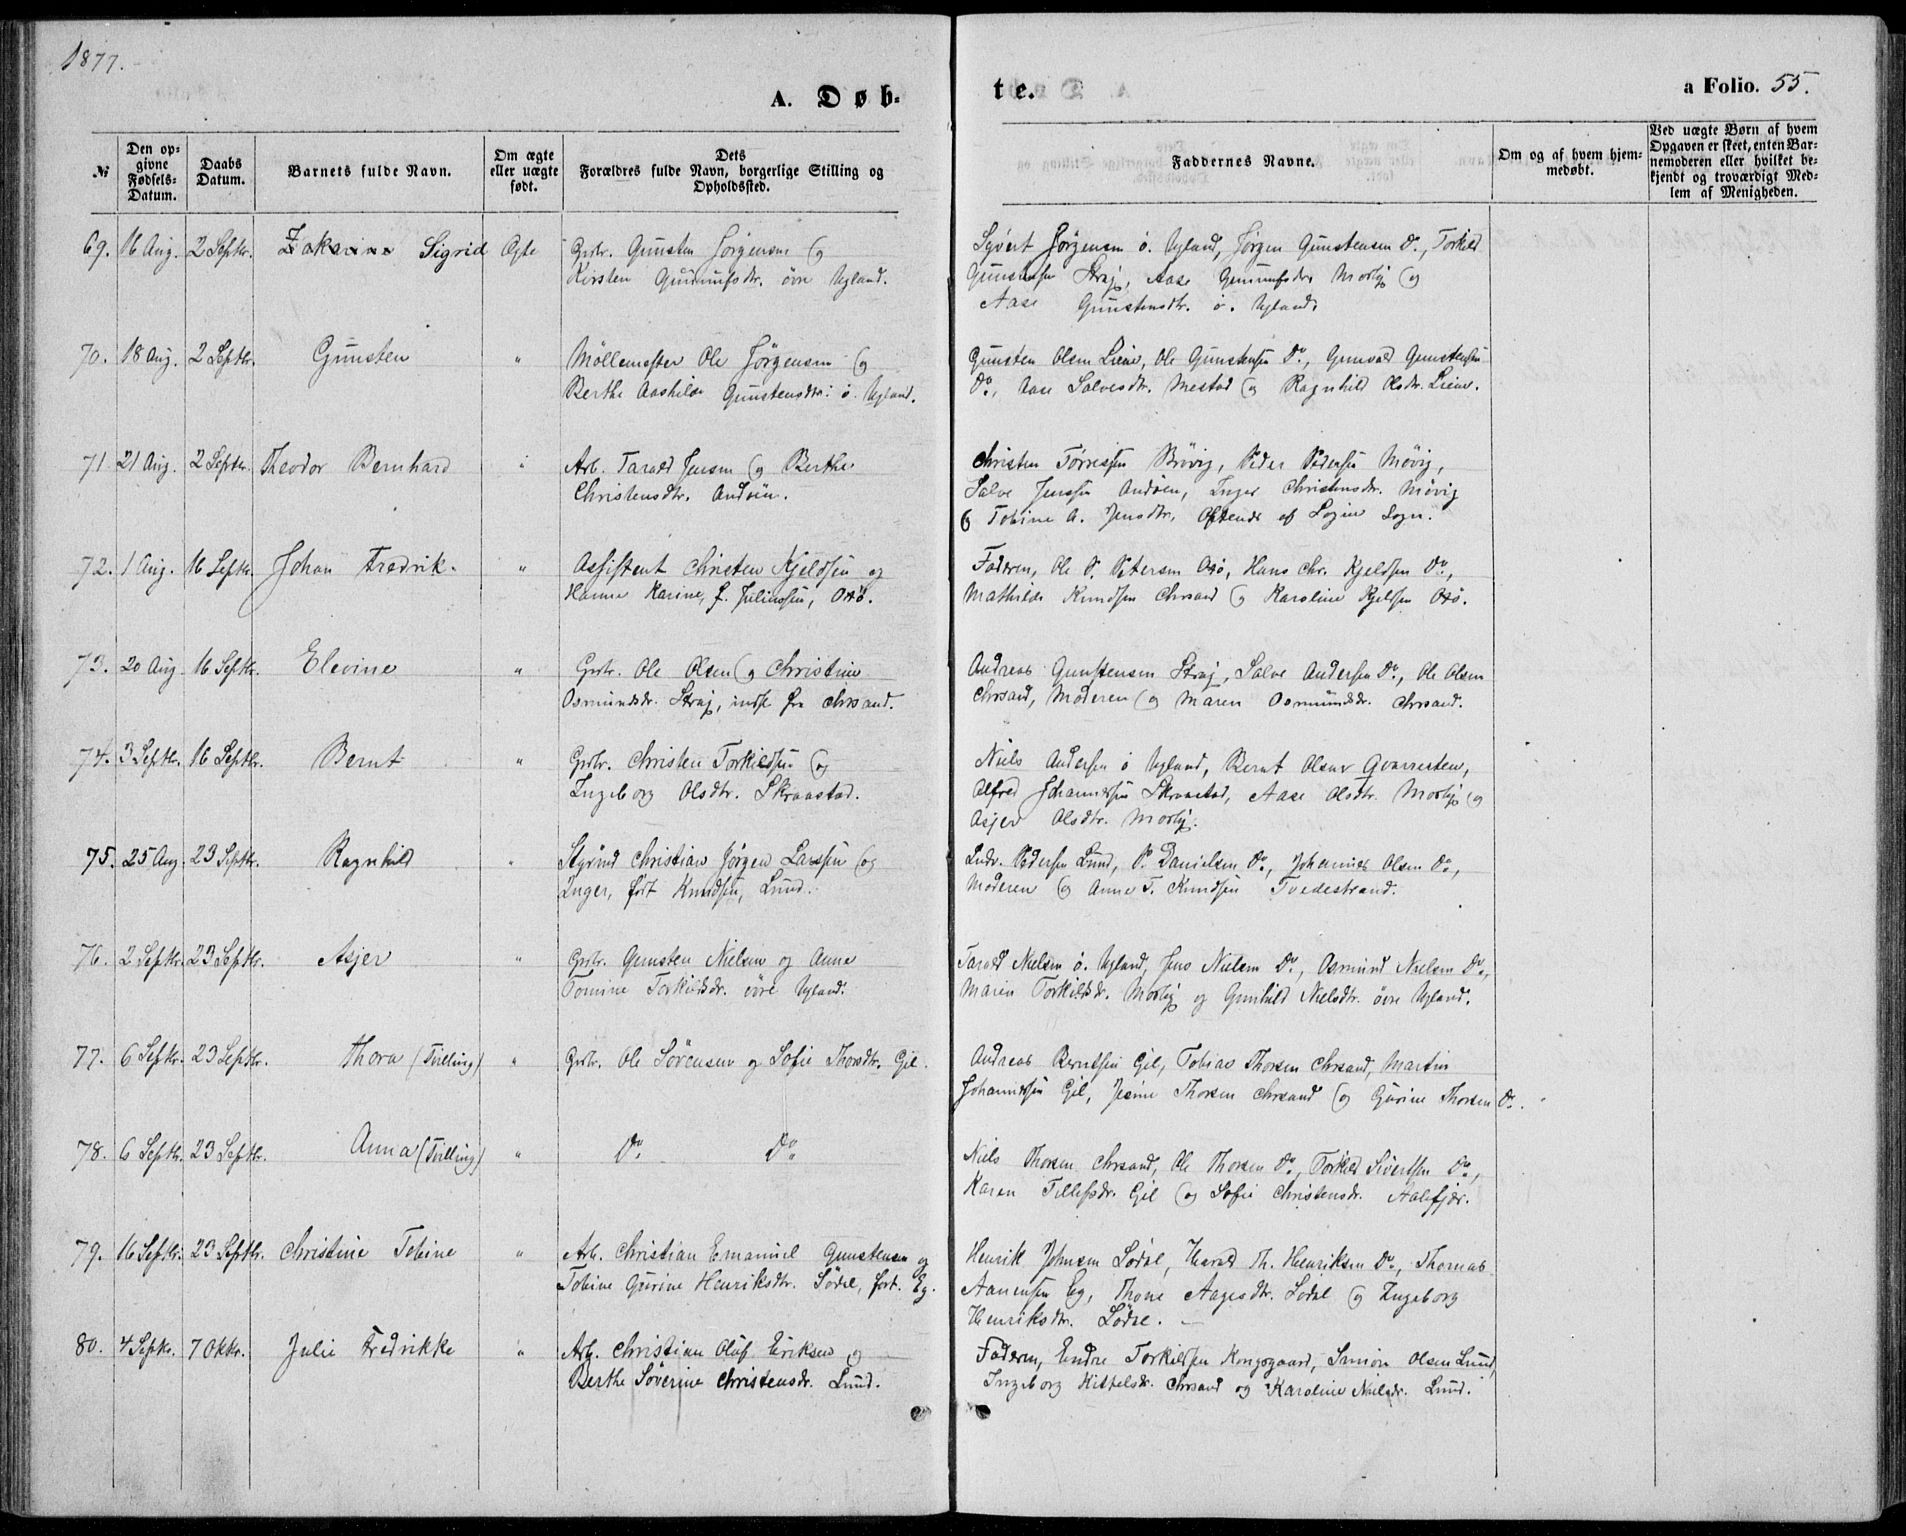 1877.
A. Døb-
te.
a Folio. 55.
№
Den op-
givne
Fødsels-
Datum.
Daabs
Datum.
Barnets fulde Navn.
Om ægte
eller uægte
født.
Dets
Forældres fulde Navn, borgerlige Stilling og
Opholdssted.
Faddernes Navne.
Om og af hvem hjem-
medøbt.
Ved uægte Børn af hvem
Opgaven er skeet, enten Bar-
nemoderen eller hvilket be-
kjendt og troværdigt Med-
lem af Menigheden.
69. 16 Aug. 2 Septbr. Sigrid Ægte Grbr. Gunsten Jörgensen og
Kirsten Gunnufsdtr. övre Ugland.
Syvert Jörgensen ö. Ugland, Jörgen Gunstensen Do., Torkild
Gunstensen Straj, Aase Gunnufsdtr Mosbÿ og
Aase Gunstensdtr. ö. Ugland.
70. 18 Aug. 2 Septbr. Gunsten " Möllemester Ole Jörgensen og
Berthe Aashilde Gunstensdtr. ö. Ugland.
Gunsten Olsen Lien, Ole Gunstensen Do., Gunvald Gunstensen
Do., Aase Salvesdtr. Mestad og Ragnhild Olsdtr. Liene.
71 21 Aug. 2 Septbr. Theodor Bernhard " Arb. Tarald Jensen og Berthe
Christensdtr. Andöen.
Christen Törressen Bövig, Peder Pedersen Mövig,
Salve Jenssen Andöen, Inger Christensdtr. Mövig
og Tobine A. Jensdtr. af Sogne Sogn.
72. 1 Aug. 16 Septbr. Johan Fredrik. " Assistent Christen Kjeldsen og
Hanne Karine, f. Juliussen, Odö.
Faderen, Ole P. Petersen Odö, Hans Chr. Kjeldsen Do.,
Mathilde Knudsen Chrsand og Karoline Kjelsen Odö.
73. 20 Aug 16 Septbr. Elevine " Grbr. Ole Olsen og Christine
Osmundsdr. Straj, indfl fra Chrsand.
Andreas Gunstensen Straj, Salve Andersen Do., Ole Olsen
Chrsand, Moderen og Maren Osmundsdr. Chrsand.
74. 3 Septbr. 16 Septbr. Bernt " Grbr. Christen Torkildsen og
Ingeborg Olsdtr. Skraastad.
Niels Andersen ö Ugland, Bernt Olsen Qvarnesten,
Alfred Johannessen Skraastad, Aase Olsdtr. Mosbÿ og
Asjer Olsdtr. Mosbÿ.
75. 25 Aug. 23 Septbr. Ragnhild " Styrmd Christian Jörgen Larssen og
Inger, född Knudsen, Lund.
Ludv. Pedersen Lund, P. Danielsen Do., Johannes Olsen Do.,
Moderen og Anne T. Knudsen Tvedestrand.
76. 2 Septbr. 23 Septbr. Asjer " Grbr. Gunsten Nielsen og Anne
Tomine Torkildsdr. övre Ugland.
Tarald Nielsen ö. Ugland, Jens Nielsen Do., Osmund Nielsen Do.,
Maren Torkildsdr. Mosbÿ og Gunhild Nielsdtr. övre Ugland.
77. 6 Septbr. 23 Septbr. Thora (Tvilling) " Grbr. Ole Sörensen og Sofie Thorsdtr. Gil.
Andreas Berntsen Gil, Tobias Thorsen Chrsand, Martin
Johannessen Gil, Jesine Thorsen Chrsand og Gurine Thorsen Do.
78. 6 Septbr. 23 Septbr. Anna (Tvilling) " Do. Do.
Niels Thorsen Chrsand, Ole Thorsen Do., Torkild Sivertsen Do.,
Karen Tellefsdr. Gil og Sofie Christensdr. Aalefjær.
79. 16 Septbr. 23 Septbr. Christine Tobine " Arb. Christian Emanuel Gunstensen og
Tobine Gurine Henriksdtr. Södal, fort. Eg.
Henrik Johnsen Södal, Harald Th. Henriksen Do., Thomas
Aanensen Eg, Thone Aagesdtr. Södal og Ingeborg
Henriksdtr. Södal.
80. 4 Septbr. 7 Oktbr. Julie Fredrikke " Arb. Christian Oluf Eriksen og
Berthe Söverine Christensdr. Lund.
Faderen, Endre Torkildsen Kongsgaard, Simon Olsen Lund,
Ingeborg Kittelsdr. Chrsand og Karoline Nielsdr. Lund.